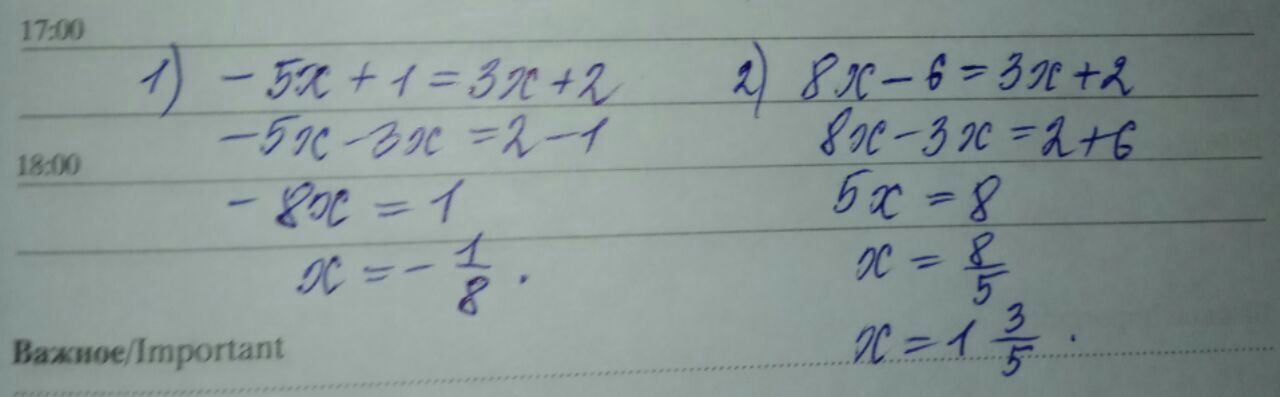 17:00
1) -5x+1=3x+2
-5x-3x=2-1
18:00
-8x=1
x=-1/8.
2) 8x-6=3x+2
8x-3x=2+6
5x=8
x=8/5
x=1 3/5.
Важное/Important